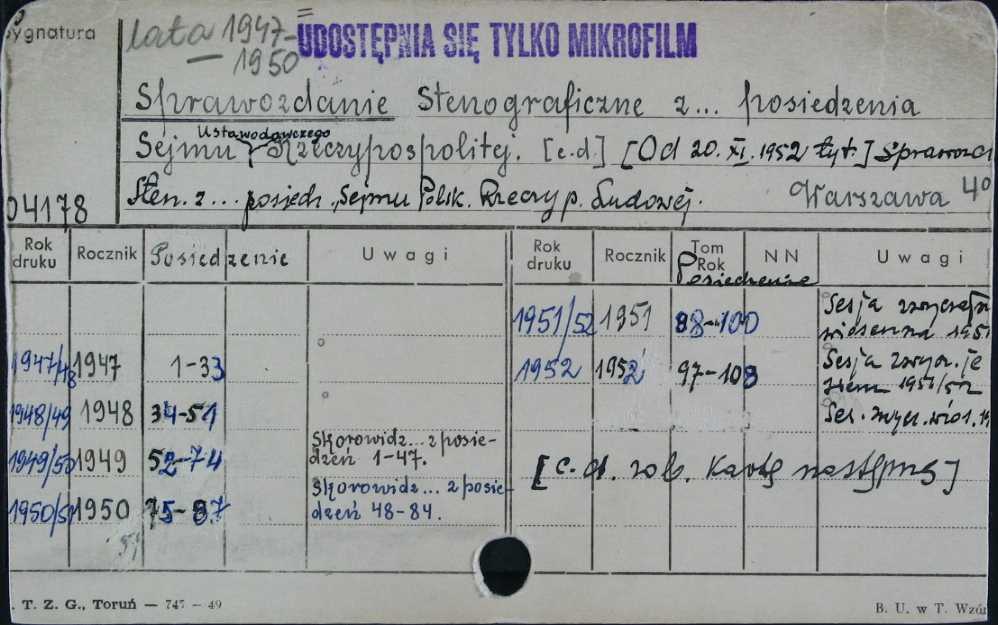 Sygnatura
lata 1947-
1950
UDOSTĘPNIA SIĘ TYLKO MIKROFILM
Sprawozdanie Stenograficzne z... posiedzenia
Ustawodawczego
Sejmu Rzeczypospolitej. [c.d.] [Od 20. XI. 1952 tyt.] Sprawozd
04178
Sten. z... posiedz. Sejmu Polsk. Rzeczyp. Ludowej. Warszawa 4°
Rok druku Rocznik Posiedzenie Uwagi
1947/48 1947 1-33
1948/49 1948 34-51
1949/50 1949 52-74 Skorowidz... z posie-
dzeń 1-47.
1950/51 1950 75-87 Skorowidz... z posie-
dzeń 48-84.
51
Rok druku Rocznik Tom Rok NN Uwagi
Posiedzenie
1951/52 1951 88-100 Sesja zwyczajn
wiosenna 1951
1952 1952 97-108 Sesja zwycz. je
sienn 1951/52
Ses. zwycz. wios. 19
[c.d. zob. kartę następną]
. T. Z. G., Toruń — 747 — 49
B. U. w T. Wzór